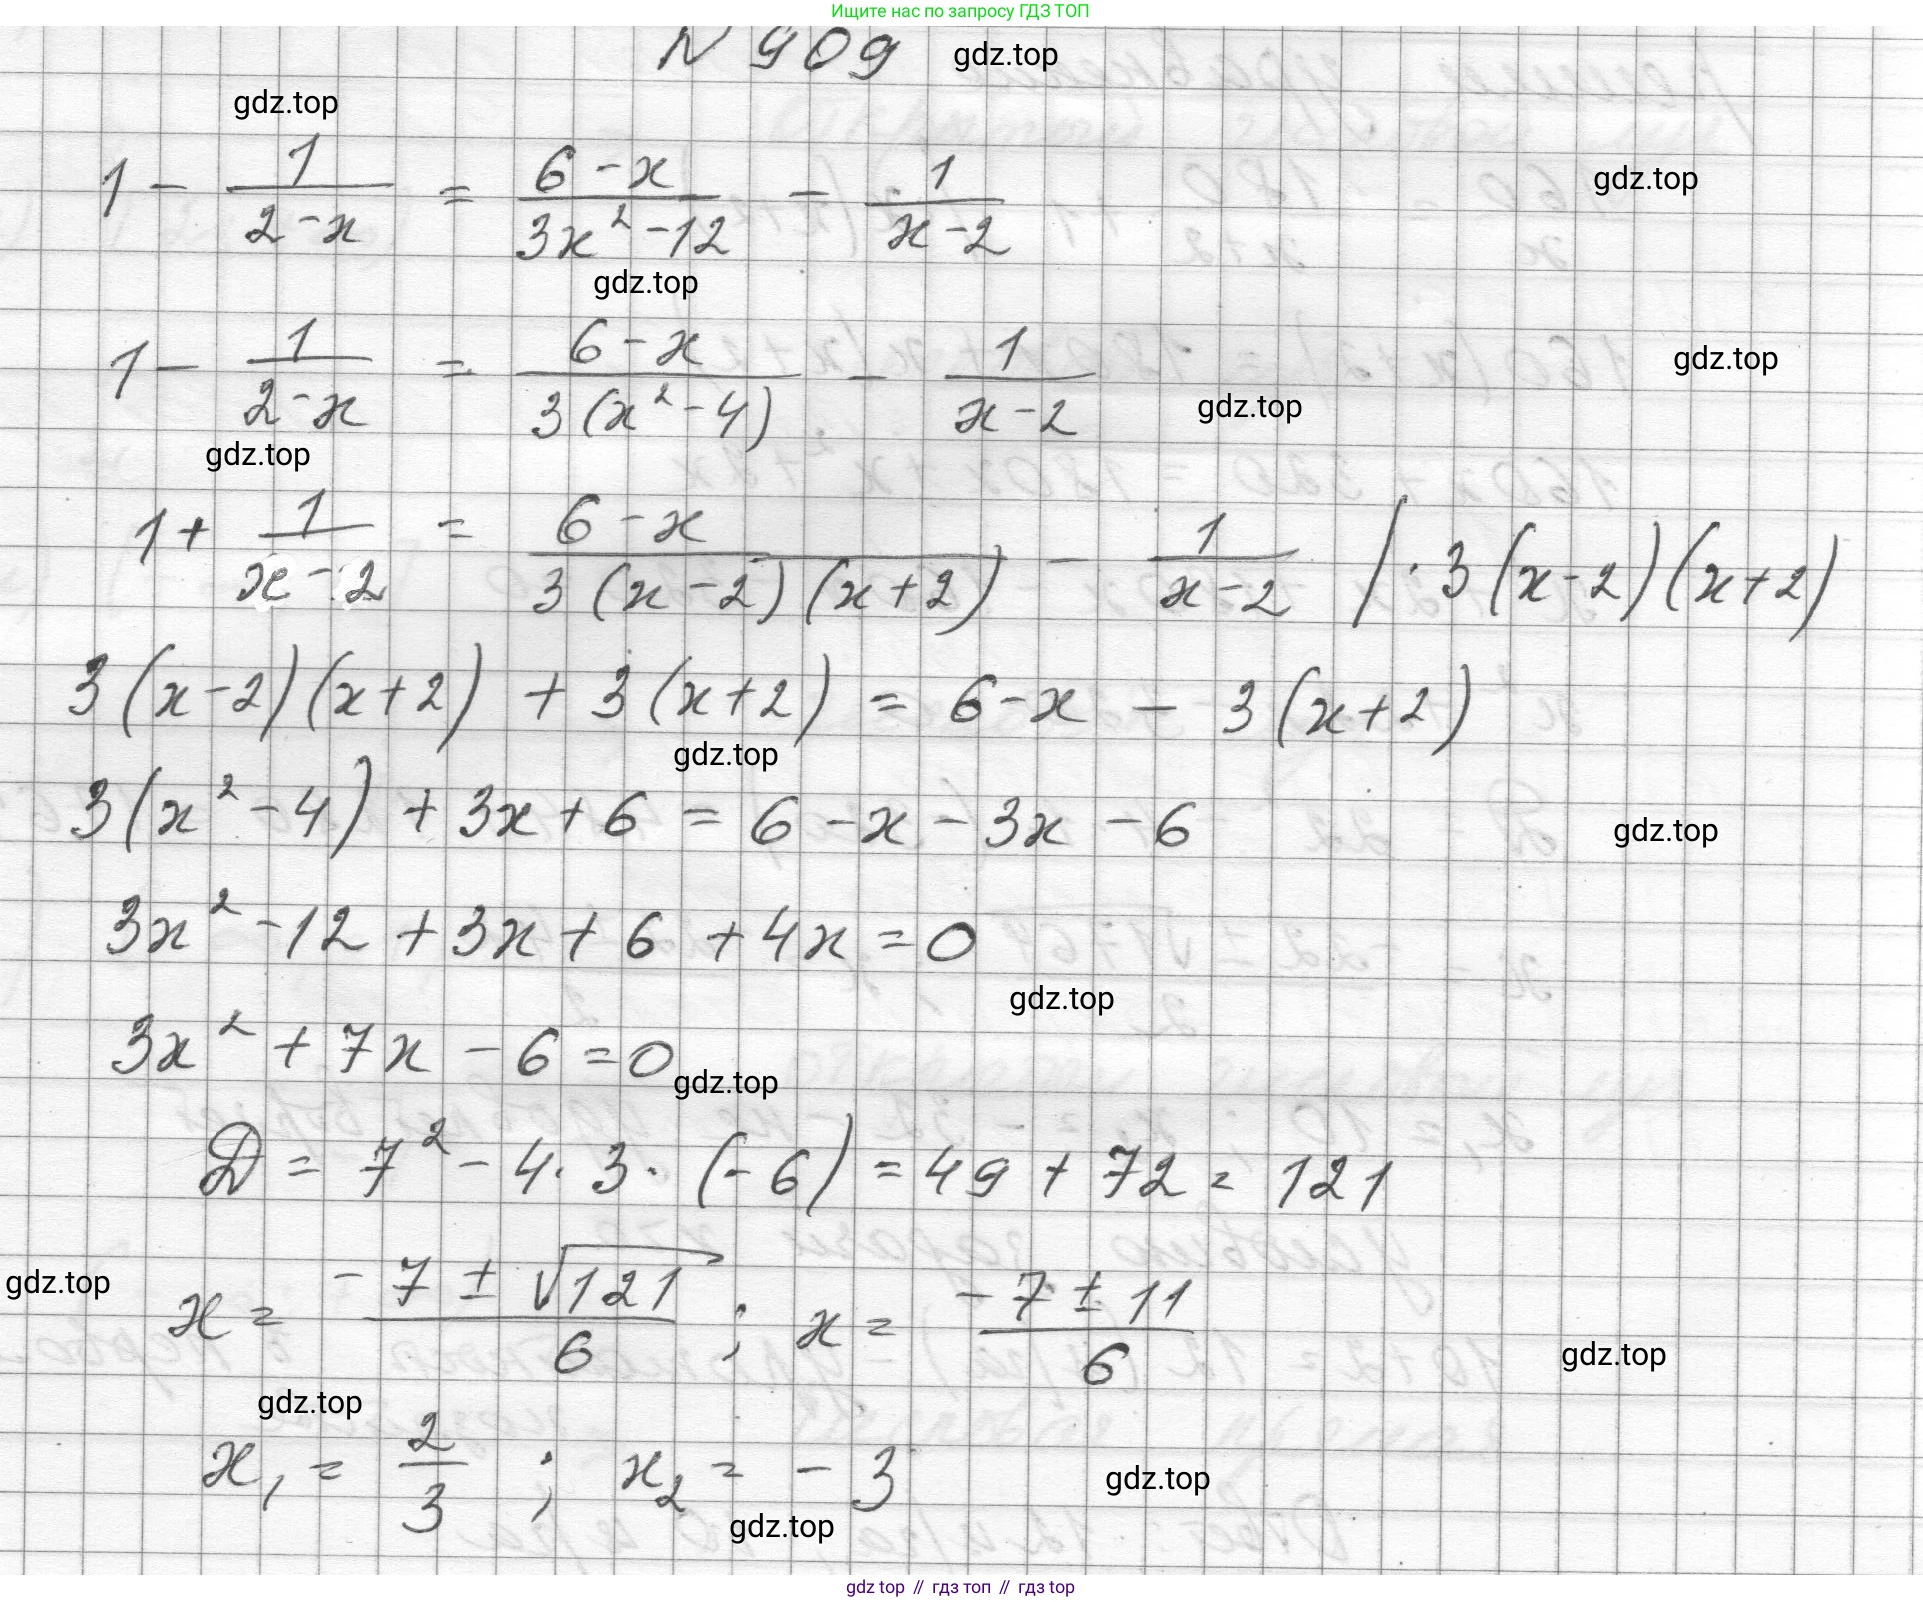 Ищите нас по запросу ГДЗ ТОП
N 909 gdz.top
gdz.top
1 - 1/(2-x) = (6-x)/(3x²-12) - 1/(x-2) gdz.top
gdz.top
1 - 1/(2-x) = (6-x)/(3(x²-4)) - 1/(x-2) gdz.top
gdz.top
gdz.top
1 + 1/(x-2) = (6-x)/(3(x-2)(x+2)) - 1/(x-2) / · 3(x-2)(x+2)
3(x-2)(x+2) + 3(x+2) = 6-x - 3(x+2)
gdz.top
3(x²-4) + 3x + 6 = 6 - x - 3x - 6 gdz.top
3x² - 12 + 3x + 6 + 4x = 0
gdz.top
3x² + 7x - 6 = 0
gdz.top
D = 7² - 4 · 3 · (-6) = 49 + 72 = 121
gdz.top
x = (-7 ± √121)/6 ; x = (-7 ± 11)/6 gdz.top
gdz.top
x₁ = 2/3 ; x₂ = - 3 gdz.top
gdz.top
gdz top // гдз топ // гдз top